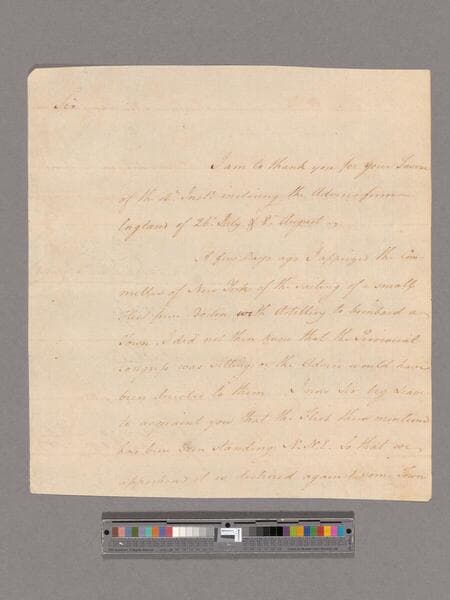 Sir
I am to thank you for your Favour
of the 4th Inst. inclosing the Advices from
England of 26 July & 8 August
A few Days ago I apprized the Com-
mittee of New York of the sailing of a small
Fleet from Boston with Artillery to bombard a
Town. I did not then know that the Provincial
Congress was sitting or the Advice would have
been directed to them. I now Sir beg Leave
to acquaint you that the Fleet then mentioned
has been seen standing N.N.E. so that we
apprehend it is destined against some Town